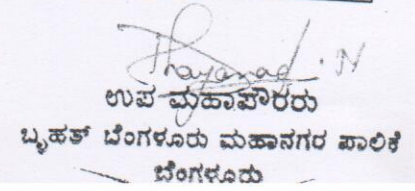 ಉಪ ಮಹಾಪೌರರು
ಬೃಹತ್ ಬೆಂಗಳೂರು ಮಹಾನಗರ ಪಾಲಿಕೆ
ಬೆಂಗಳೂರು